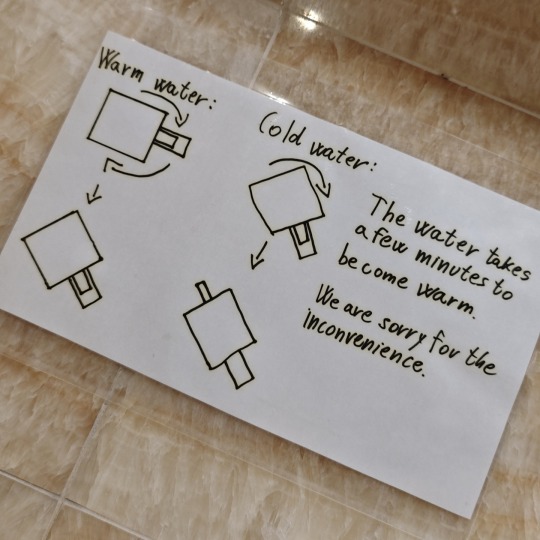 Warm water:
Cold water:
The water takes
a few minutes to
become warm.
We are sorry for the
inconvenience.